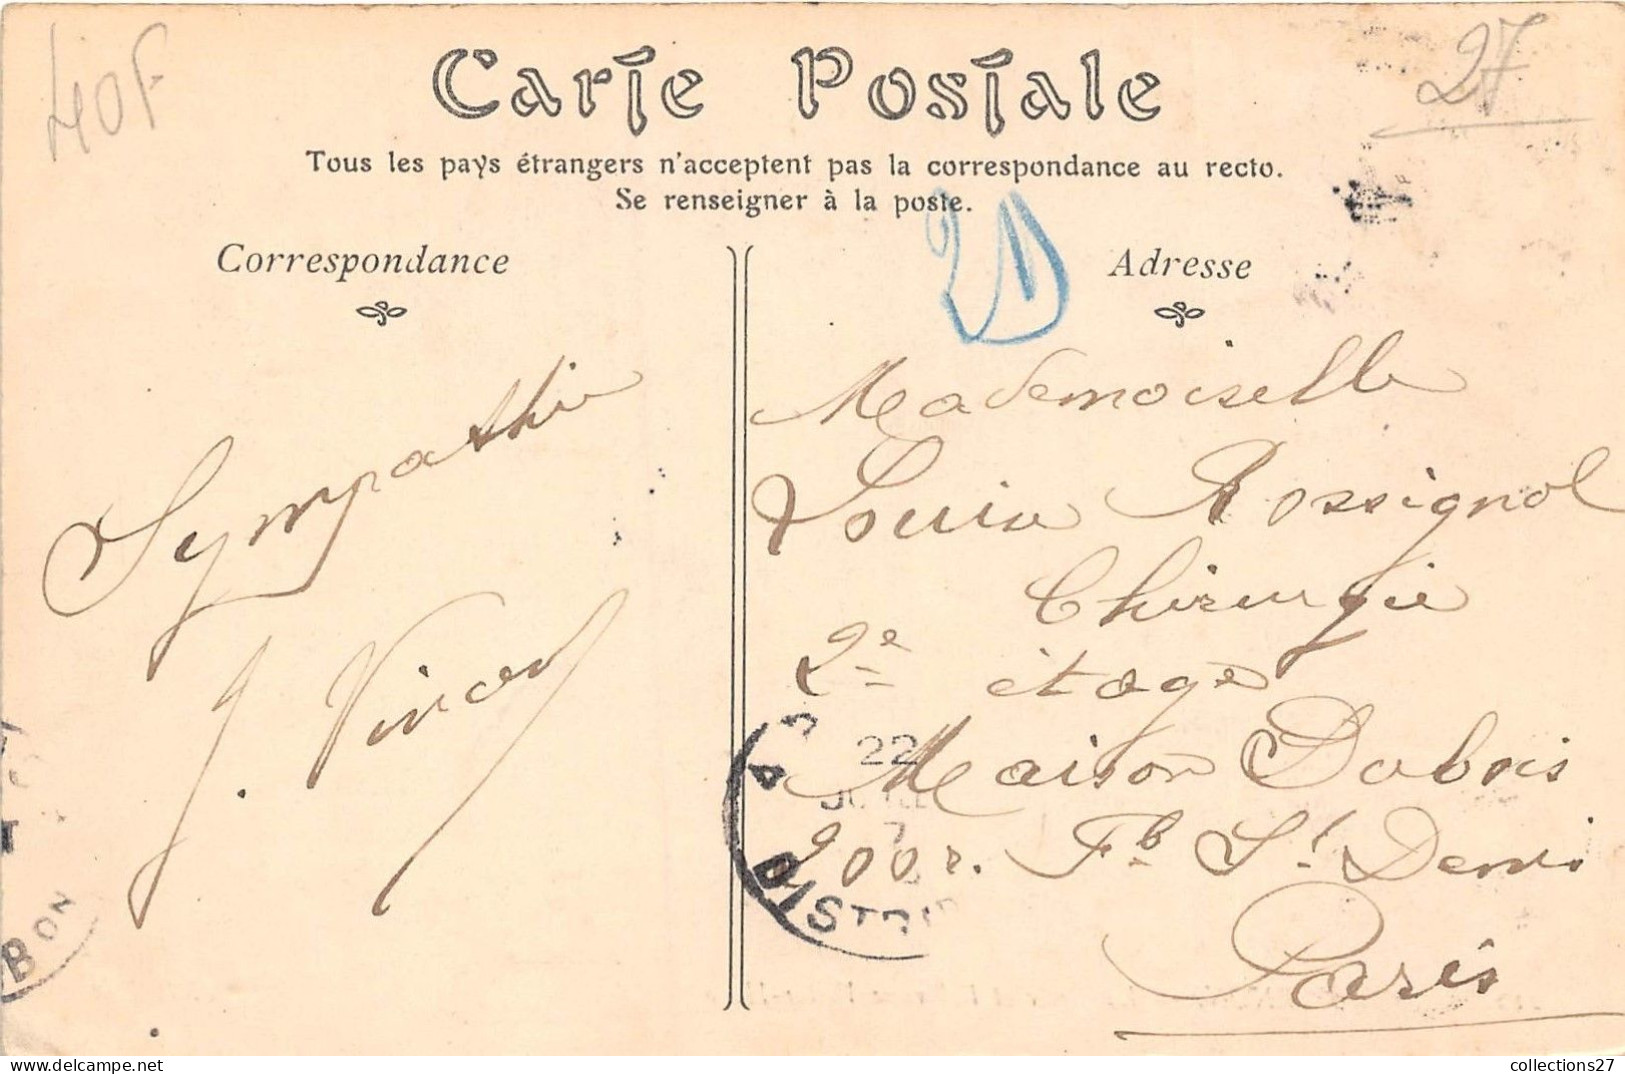 40F
27
Carte Postale
Tous les pays étrangers n'acceptent pas la correspondance au recto.
Se renseigner à la poste.
Correspondance
Adresse
Sympathie
Mademoiselle
Louise Rossignol
Chirurgie
2e étage
Maison Dubois
200 r. Fb St Denis
Paris
22
DISTRIB
BON
collections27